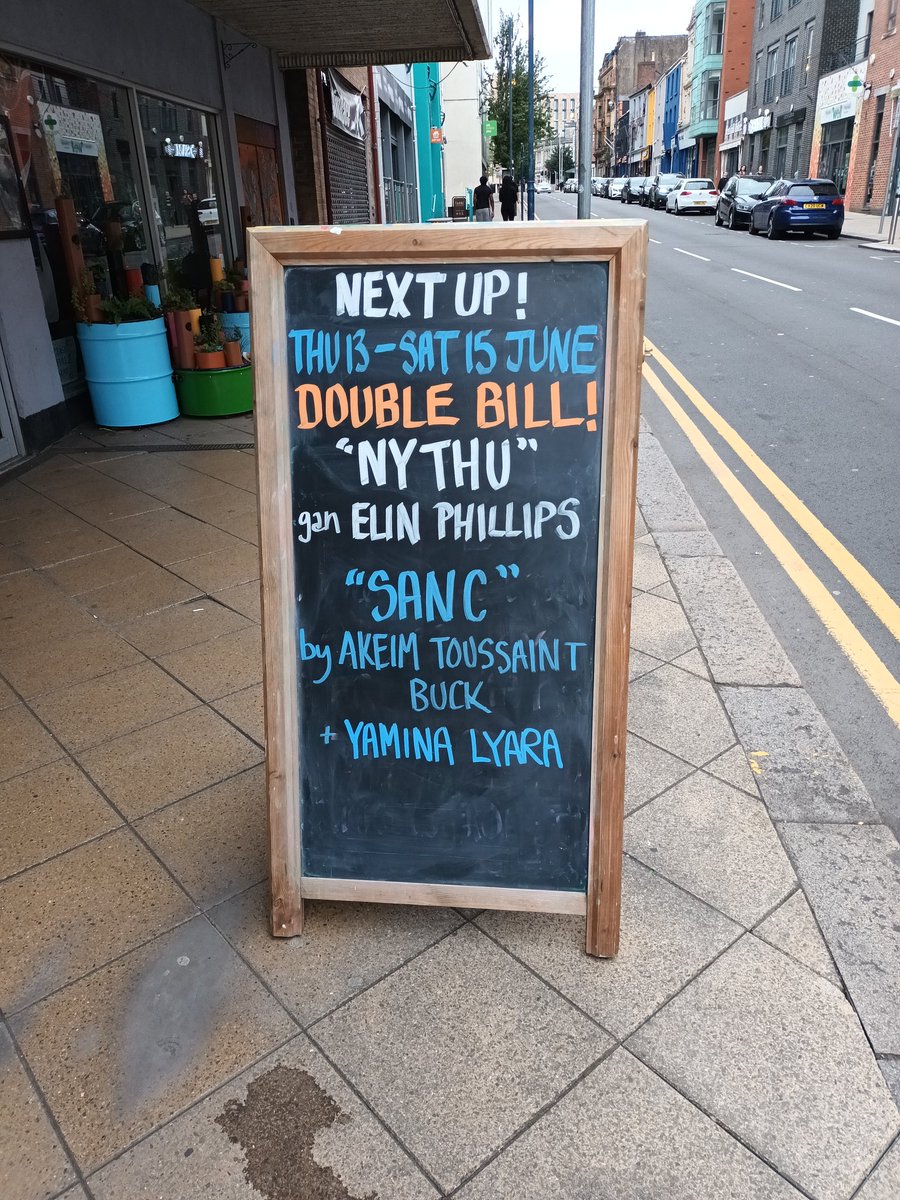 NEXT UP!
THU 13 - SAT 15 JUNE
DOUBLE BILL!
"NYTHU"
gan ELIN PHILLIPS
"SANC"
by AKEIM TOUSSAINT
BUCK
+ YAMINA LYARA